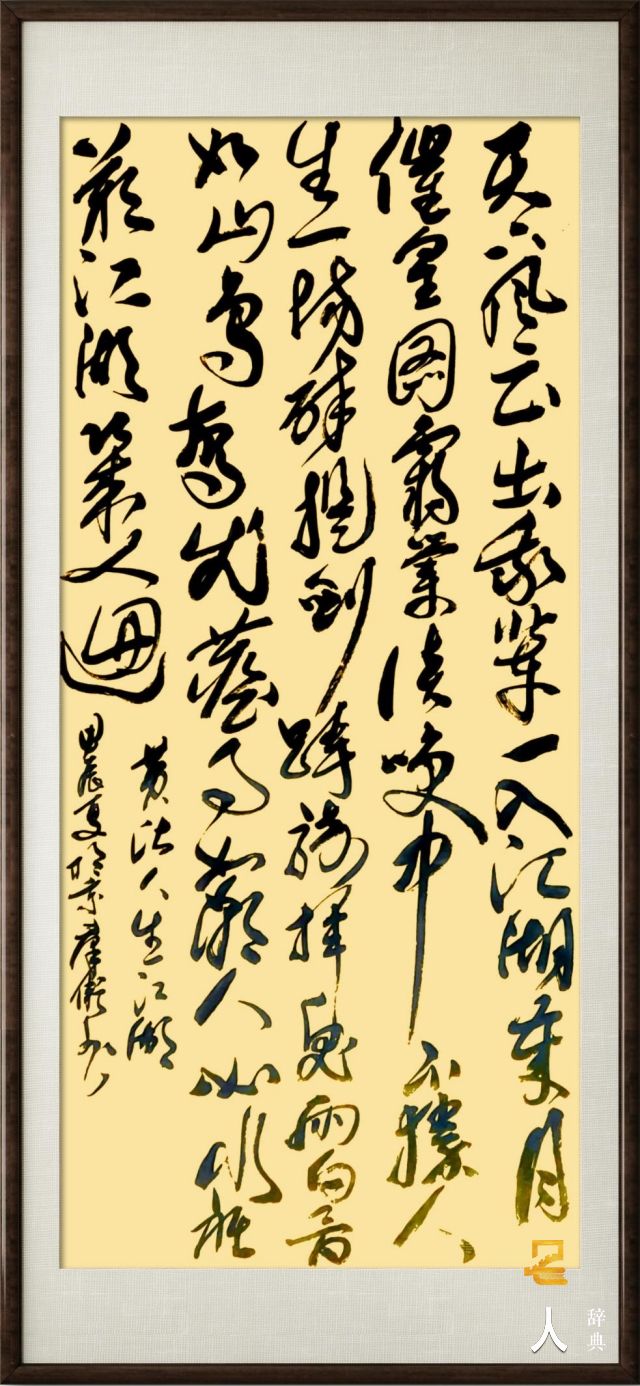 天下風云出我辈一入江湖岁月
催皇图霸業谈笑中不勝人
生一場醉提剑跨骑挥鬼雨白骨
如山鸟驚飞塵事如潮人如水只
叹江湖几人迴
黄沾人生江湖
甲辰夏
名人
辞典